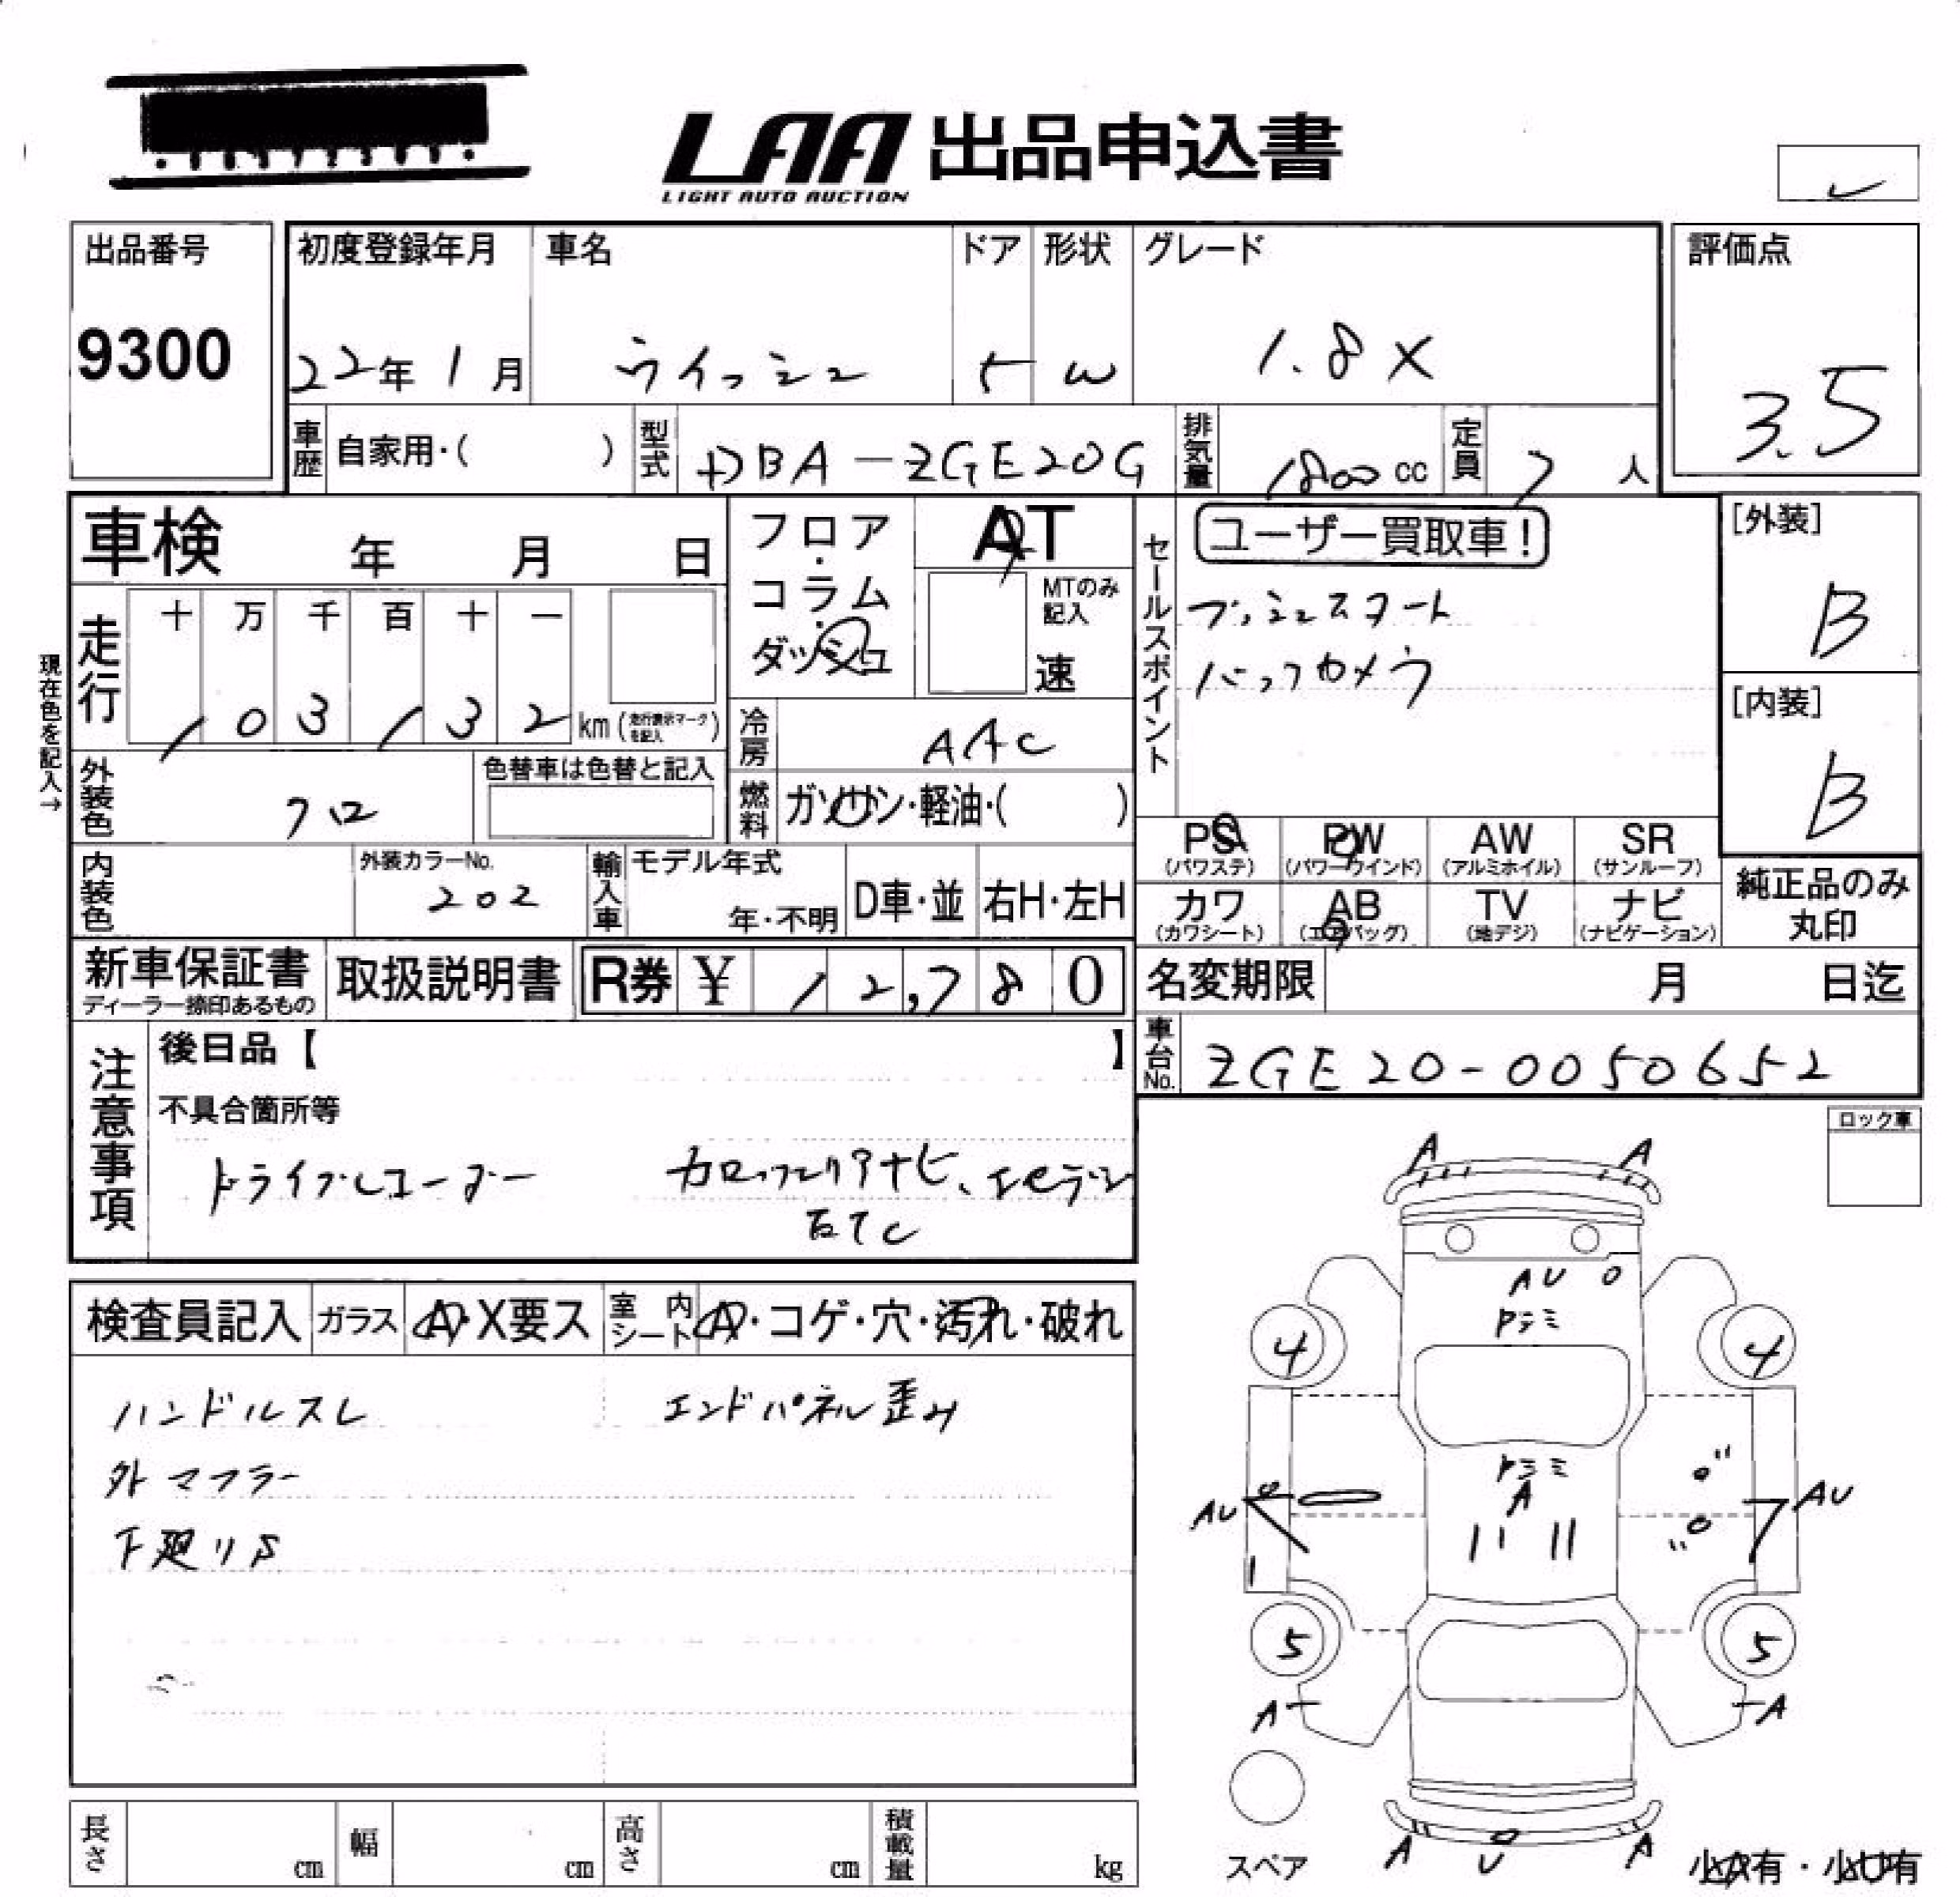 LAA 出品申込書
LIGHT AUTO AUCTION
出品番号 初度登録年月 車名 ドア 形状 グレード 評価点
9300 22年 1月 ウイッシュ 5 W 1.8X 3.5
車歴 自家用・( ) 型式 DBA-ZGE20G 排気量 1800 cc 定員 7 人
車検 年 月 日 フロア・コラム・ダッシュ AT
MTのみ記入
速
セールスポイント ユーザー買取車！
プッシュスタート
バックカメラ
[外装]
B
[内装]
B
現在色を記入→
走行 十 万 千 百 十 一
1 0 3 1 3 2 km (走行表示マークを記入)
冷房 AAC
外装色 クロ 色替車は色替と記入
燃料 ガソリン・軽油・( )
PS (パワステ) PW (パワーウインド) AW (アルミホイル) SR (サンルーフ)
カワ (カワシート) AB (エアバッグ) TV (地デジ) ナビ (ナビゲーション)
純正品のみ
丸印
内装色 外装カラーNo. 202 輸入車 モデル年式 年・不明 D車・並 右H・左H
新車保証書 取扱説明書 R券 ¥ 1 2,7 8 0 名変期限 月 日迄
ディーラー捺印あるもの
車台No. ZGE20-0050652
注意事項 後日品【 】
不具合箇所等
ドライブレコーダー カロッツェリアナビ、
ETC
ロック車
検査員記入 ガラス A・X要ス 室内シート A・コゲ・穴・汚れ・破れ
ハンドルスレ エンドパネル歪み
外マフラー
下廻りS
A A
AU
トラミ
4 4
トラミ
A
AU AU
5 5
A A
スペア
A U A
小A有・小U有
長さ cm 幅 cm 高さ cm 積載量 kg